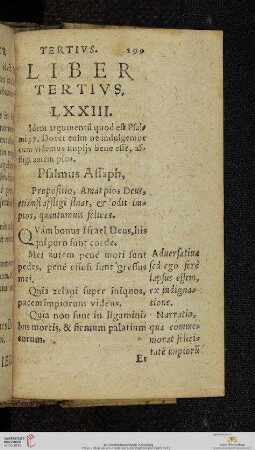 TERTIVS. 299
LIBER
TERTIVS.
LXXIII.
Idem argumentū quod est Psal-
mi 37. Docet enim ne indulgemor
cum videmus impijs bene esse, af-
fligi autem pios.
Psalmus Assaph,
Propositio, Amat pios Deus,
etiamsi affligi sinat, & odit im-
pios, quantumuis felices.
QVam bonus Israel Deus, his
qui puro sunt corde.
Mei autem penè moti sunt
pedes, penè effusi sunt gressus
mei.
Quia zelaui super iniquos,
pacem impiorum videns.
Quia non sunt in ligaminibus
bus mortis, & firmum palatium
eorum.
Aduersatiua
sed ego ferè
lapsus essem,
ex indigna-
tione.
Narratio,
qua comme-
morat felici-
tatē impiorū
Et